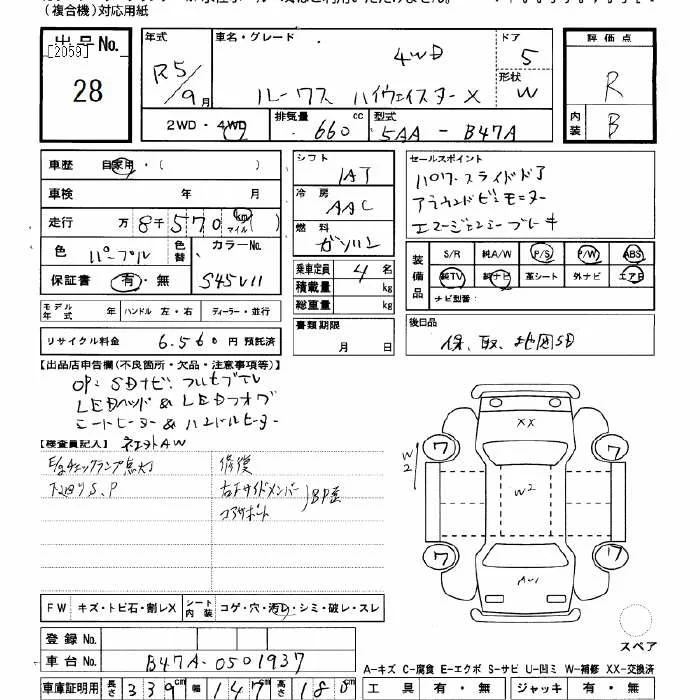 (複合機)対応用紙
出品No.
[2059]
28
年式
R5/9月
車名・グレード
4WD
ルークス ハイウェイスターX
ドア
5
形状
W
評価点
R
内装
B
2WD・4WD
排気量
660 cc
型式
5AA - B47A
車歴 自家用・( )
車検 年 月
走行 万 8千570 km マイル ( )
色 パープル 色替
カラーNo.
S45V11
保証書 有・無
シフト
IAT
冷房
AAC
燃料
ガソリン
乗車定員 4 名
積載量 kg
総重量 kg
書類期限
月 日
セールスポイント
パワースライドドア
アラウンドビューモニター
エマージェンシーブレーキ
装備品
S/R 純A/W P/S P/W ABS
純TV 純ナビ 革シート 外ナビ エアB
ナビ型番:
モデル年式 年 ハンドル 左・右 ディーラー・並行
リサイクル料金 6.560 円 預託済
後日品
保、取、地図SD
【出品店申告欄(不良箇所・欠品・注意事項等)】
OP: SDナビ フルセグTV
LEDヘッド & LEDフォグ
シートヒーター & ハンドルヒーター
【検査員記入】
E/gチェックランプ点灯
下廻りS、P
修復
右Fサイドメンバー
コアサポート
BP歪
XX
W2
W2
ワ
ワ
ワ
ワ
A-1
スペア
FW キズ・トビ石・割レX
シート内装 コゲ・穴・汚レ・シミ・破レ・スレ
登録No.
車台No. B47A-0501937
A-キズ C-腐食 E-エクボ S-サビ U-凹ミ W-補修 XX-交換済
車庫証明用 長さ 339 cm 幅 147 cm 高さ 180 cm
工具 有・無 ジャッキ 有・無